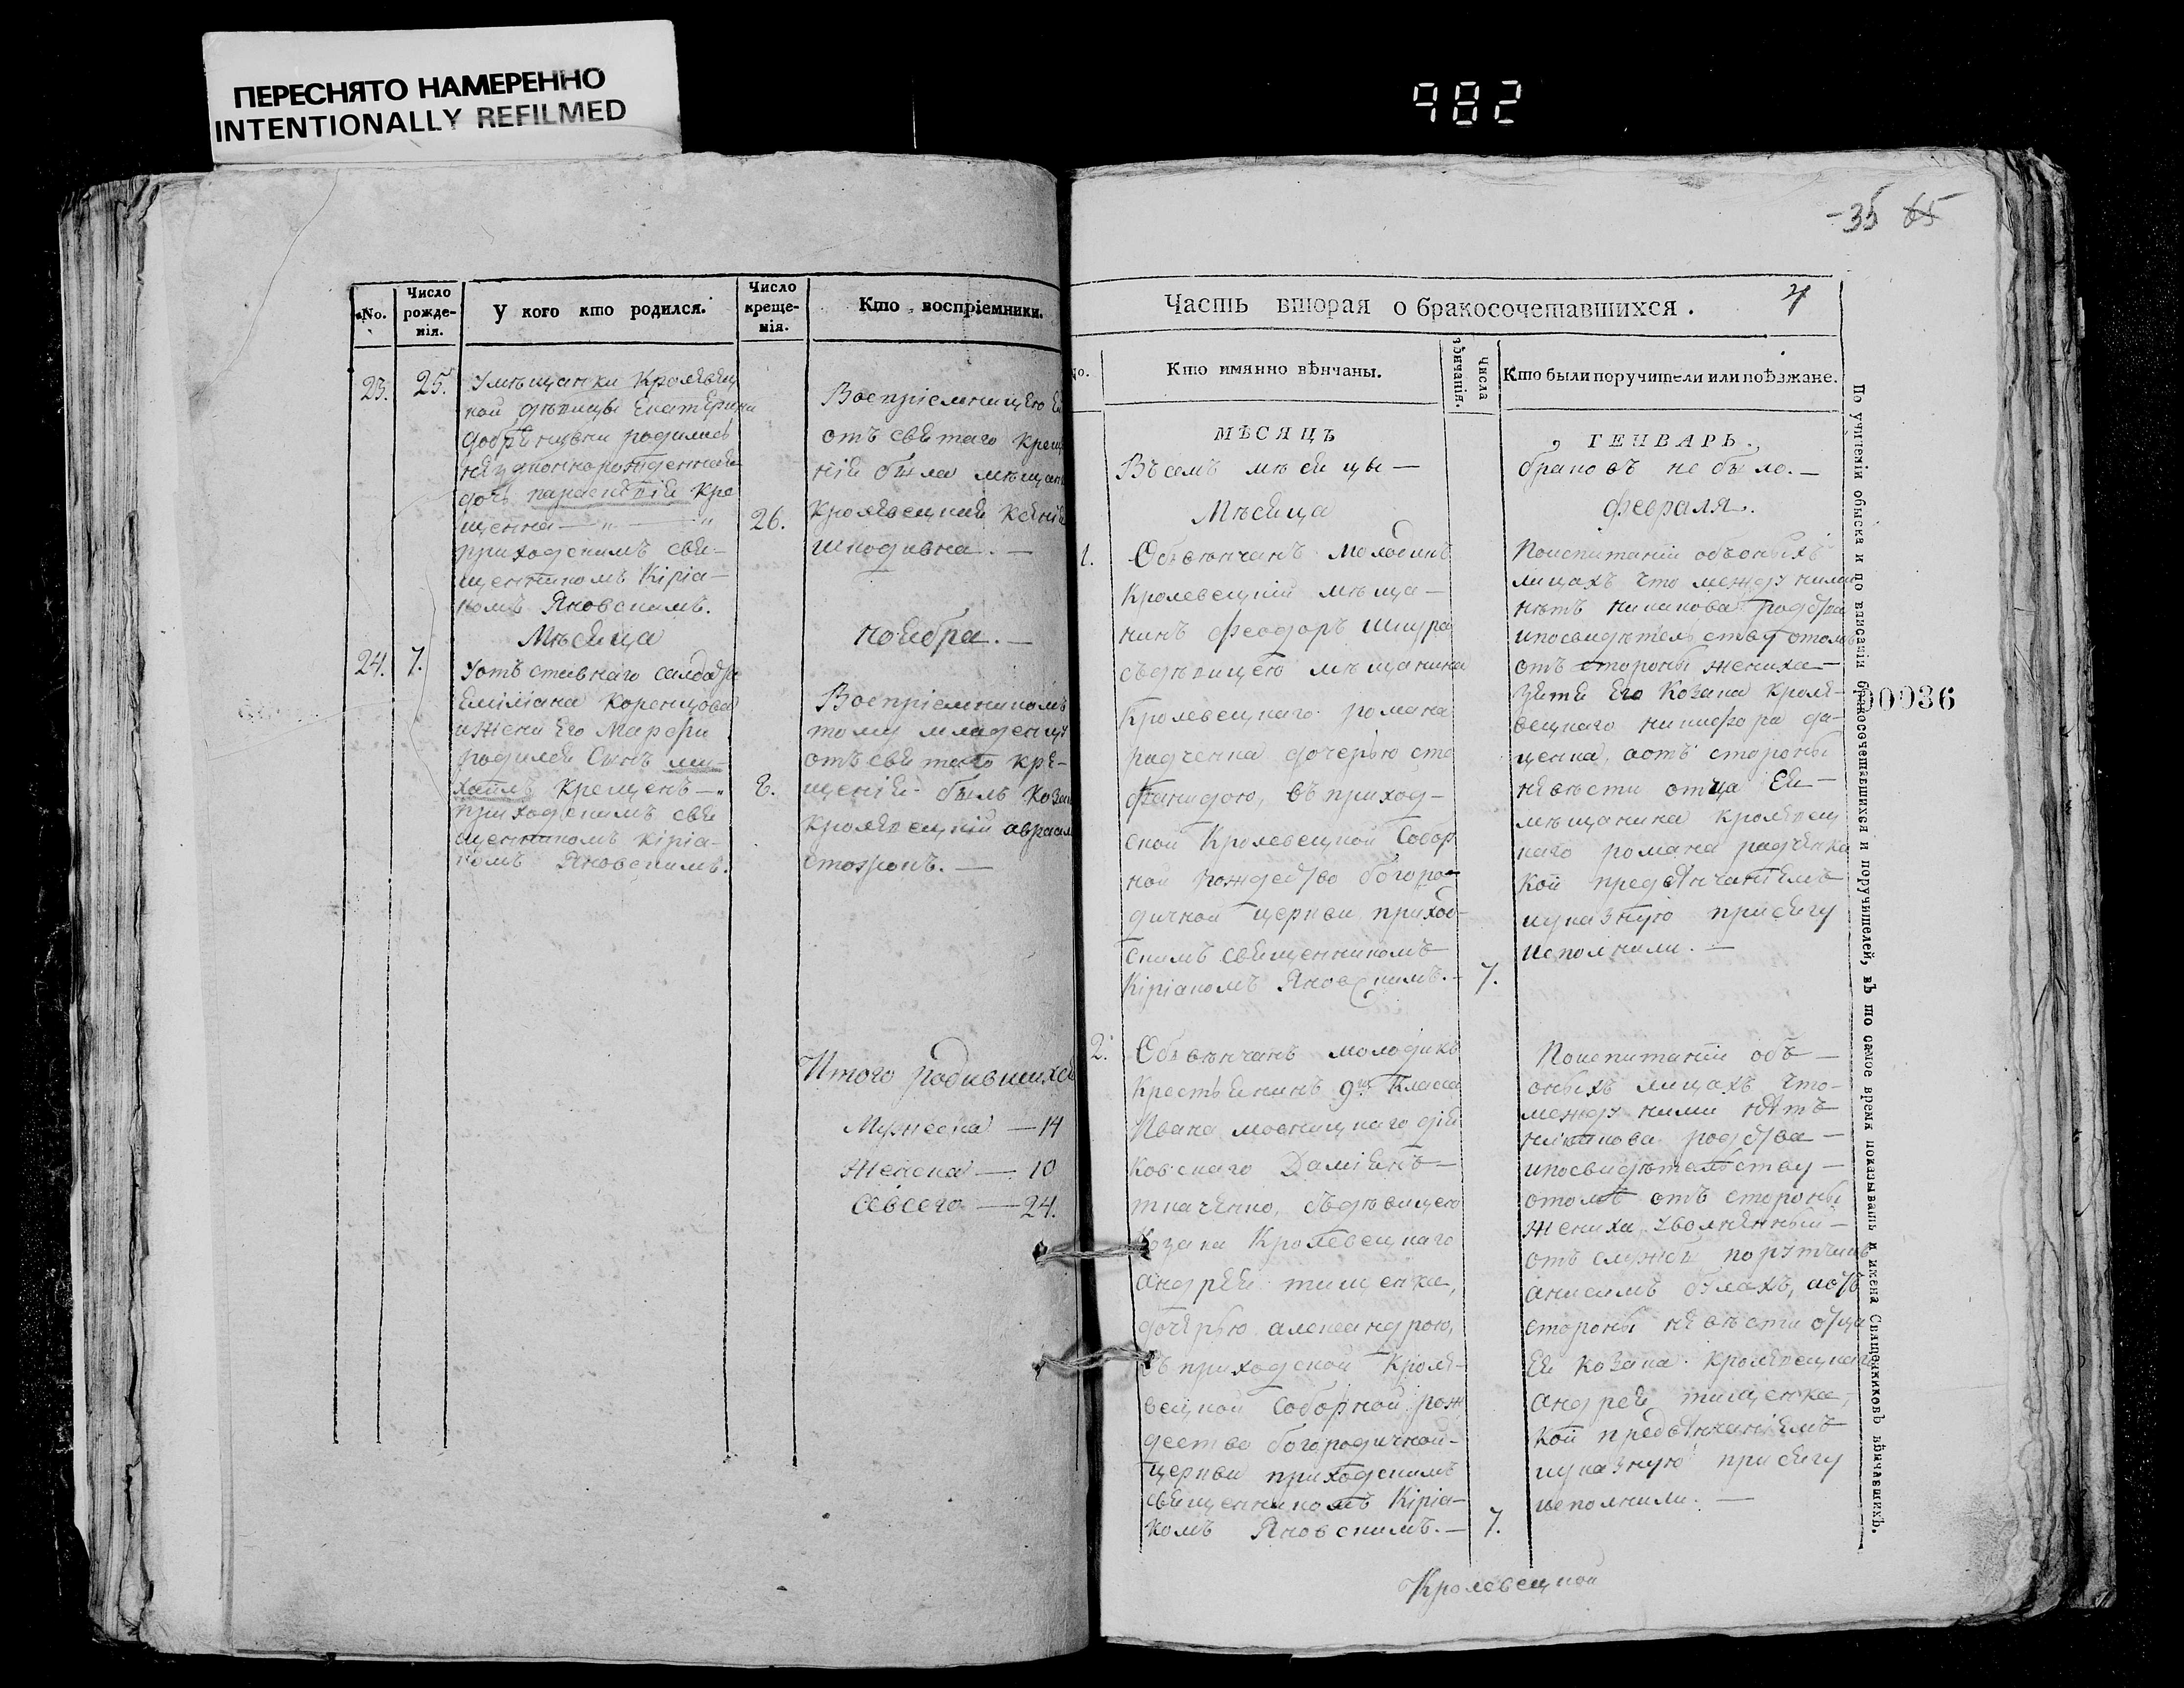 ПЕРЕСНЯТО НАМЕРЕННО
INTENTIONALLY REFILMED
982
No.
Число рожденія.
У кого кто родился.
Число крещенія.
Кто воспріемники.
23.
25.
Умѣщанки Кролевец
кой дѣвицы Екатерины
родилась
незаконнорожденная
дочь параскевія Кре
щенна — " — "
26.
приходскимъ свя-
щенникомъ Кіріа-
комъ Яновскимъ.
Воспріемницею Ея
отъ святаго креще
нія была мѣщанка
Кролевецкая Ксенія
Мѣсяца
Ноября. —
24.
7.
Уотъставнаго салдата
Еміліана Коренцова
ижены Его Марфы
родился Сынъ ми-
хаилъ Крещенъ — "
8.
приходскимъ свя
щенникомъ Кіріа-
комъ Яновскимъ.
Воспріемникомъ
тому младенцу
отъ святаго кре-
щенія былъ Козакъ
Кролевецкій авраам
Итого родившихся
Мужеска — 14
Женска — 10
Обоего — 24.
-36 65
Часть вторая о бракосочетавшихся.
No.
Кто имянно вѣнчаны.
Числа вѣнчанія.
Кто были поручители или поѣзжане.
МѢСЯЦЪ
ГЕНВАРЬ.
Въсемъ мѣсяцы —
браковъ небыло. —
Мѣсяца
Февраля.
1.
Обвѣнчанъ молодикъ
Кролевецкій мѣща-
нинъ Феодоръ Шкура
съдѣвицею мѣщанина
Кролевецкаго романа
радченка дочерью сте
фанидою, въ приход-
ской Кролевецкой Собор
ной Рождество богоро-
дичной церкви приход-
скимъ священникомъ
Кіріакомъ Яновскимъ. —
7.
Поиспитаніи объоныхъ
лицахъ что между ними
нѣтъ никакова родства
ипосвидѣтельству отомъ
отъ стороны жениха —
зятя Его Козака Кроле-
вецкаго никифора да-
ценка, аотъ стороны
невѣсти отца Ея —
мѣщанина Кролевец
каго романа радченка
Кои предвѣнчаніемъ
иуказную присягу
исполнили. —
2.
Обвѣнчанъ молодикъ
Крестьянинъ 9го Класса
Ивана
ковскаго Даміянъ —
ткаченко, съдѣвицею
Козака Кролевецкаго
андрея тищенка,
дочерью александрою,
въ приходской Кроле-
вецкой Соборной рож
дество богородичной —
церкви приходскимъ
священникомъ Кіріа-
комъ Яновскимъ. —
7.
Поиспитаніи объ —
оныхъ лицахъ что —
между ними нѣтъ
никакова родства —
ипосвидѣтельству —
отомъ отъ стороны
жениха уволненный —
отъ служби порутчикъ
анисимъ булахъ, аотъ
стороны невѣсти отца
Ея Козака Кролевецкаго
андрея тищенка,
Кои предвѣнчаніемъ
иуказную присягу
исполнили. —
Кролевецкой
По учиненіи обыска и по вписаніи бракосочетавшихся и поручителей, въ то самое время показывать и имена Священниковъ вѣнчавшихъ.
00036